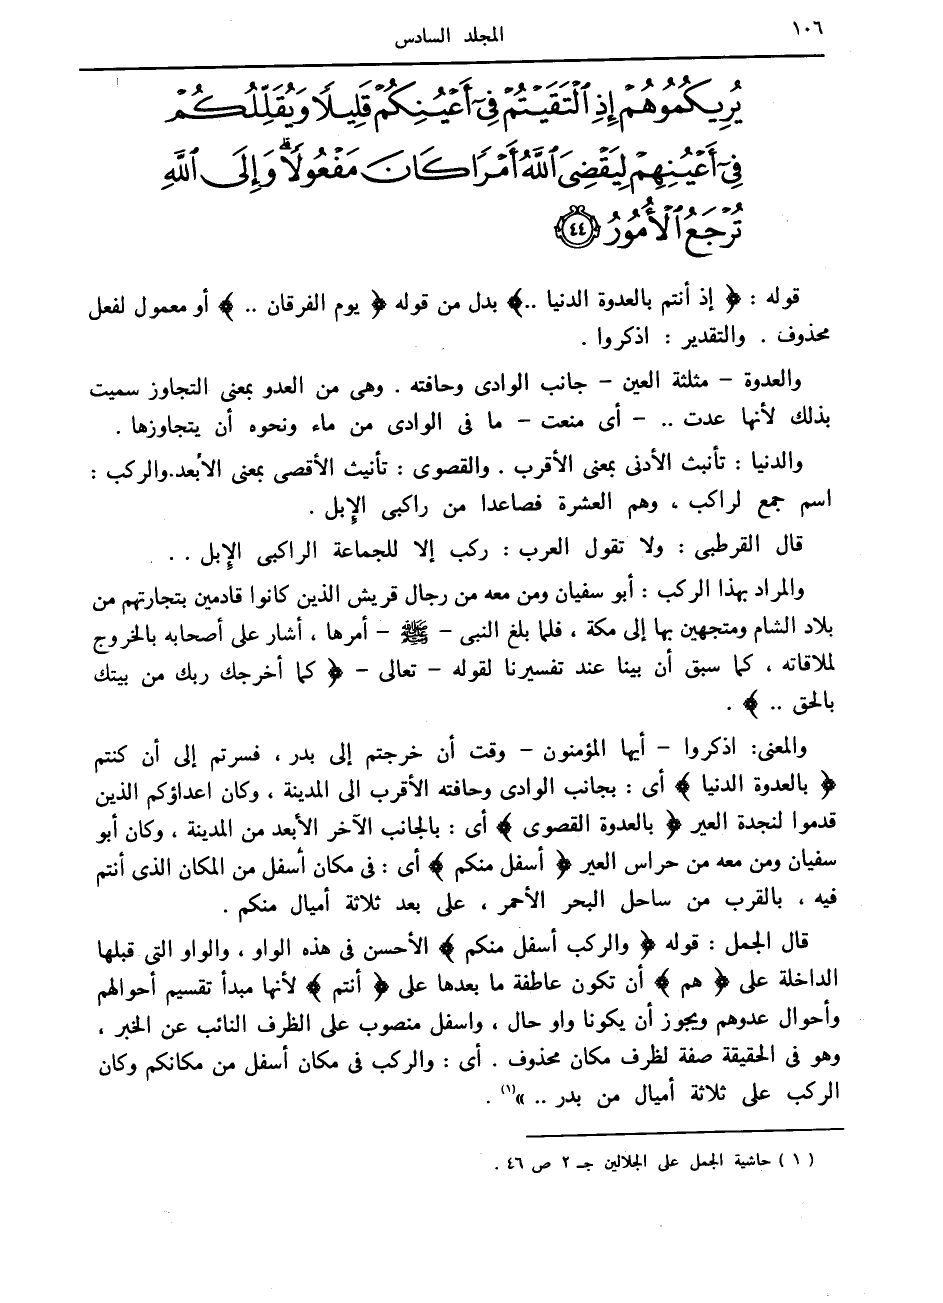 ١٠٦
المجلد السادس
يُرِيكُمُوهُمْ إِذِ ٱلْتَقَيْتُمْ فِىٓ أَعْيُنِكُمْ قَلِيلًا وَيُقَلِّلُكُمْ
فِىٓ أَعْيُنِهِمْ لِيَقْضِىَ ٱللَّهُ أَمْرًا كَانَ مَفْعُولًا ۗ وَإِلَى ٱللَّهِ
تُرْجَعُ ٱلْأُمُورُ ٤٤
قوله : ﴿ إذ أنتم بالعدوة الدنيا ..﴾ بدل من قوله ﴿ يوم الفرقان .. ﴾ أو معمول لفعل
محذوف . والتقدير : اذكروا .
والعدوة – مثلثة العين – جانب الوادى وحافته . وهى من العدو بمعنى التجاوز سميت
بذلك لأنها عدت .. – أى منعت – ما فى الوادى من ماء ونحوه أن يتجاوزها .
والدنيا : تأنيث الأدنى بمعنى الأقرب . والقصوى : تأنيث الأقصى بمعنى الأبعد.والركب :
اسم جمع لراكب ، وهم العشرة فصاعدا من راكبى الإبل .
قال القرطبى : ولا تقول العرب : ركب إلا للجماعة الراكبى الإبل . .
والمراد بهذا الركب : أبو سفيان ومن معه من رجال قريش الذين كانوا قادمين بتجارتهم من
بلاد الشام ومتجهين بها إلى مكة ، فلما بلغ النبى – ﷺ – أمرها ، أشار على أصحابه بالخروج
لملاقاته ، كما سبق أن بينا عند تفسيرنا لقوله – تعالى – ﴿ كما أخرجك ربك من بيتك
بالحق .. ﴾ .
والمعنى: اذكروا – أيها المؤمنون – وقت أن خرجتم إلى بدر ، فسرتم إلى أن كنتم
﴿ بالعدوة الدنيا ﴾ أى : بجانب الوادى وحافته الأقرب الى المدينة ، وكان اعداؤكم الذين
قدموا لنجدة العير ﴿ بالعدوة القصوى ﴾ أى : بالجانب الآخر الأبعد من المدينة ، وكان أبو
سفيان ومن معه من حراس العير ﴿ أسفل منكم ﴾ أى : فى مكان أسفل من المكان الذى أنتم
فيه ، بالقرب من ساحل البحر الأحمر ، على بعد ثلاثة أميال منكم .
قال الجمل : قوله ﴿ والركب أسفل منكم ﴾ الأحسن فى هذه الواو ، والواو التى قبلها
الداخلة على ﴿ هم ﴾ أن تكون عاطفة ما بعدها على ﴿ أنتم ﴾ لأنها مبدأ تقسيم أحوالهم
وأحوال عدوهم ويجوز أن يكونا واو حال ، واسفل منصوب على الظرف النائب عن الخبر ،
وهو فى الحقيقة صفة لظرف مكان محذوف . أى : والركب فى مكان أسفل من مكانكم وكان
الركب على ثلاثة أميال من بدر .. »(١) .
( ١ ) حاشية الجمل على الجلالين جـ ٢ ص ٤٦ .